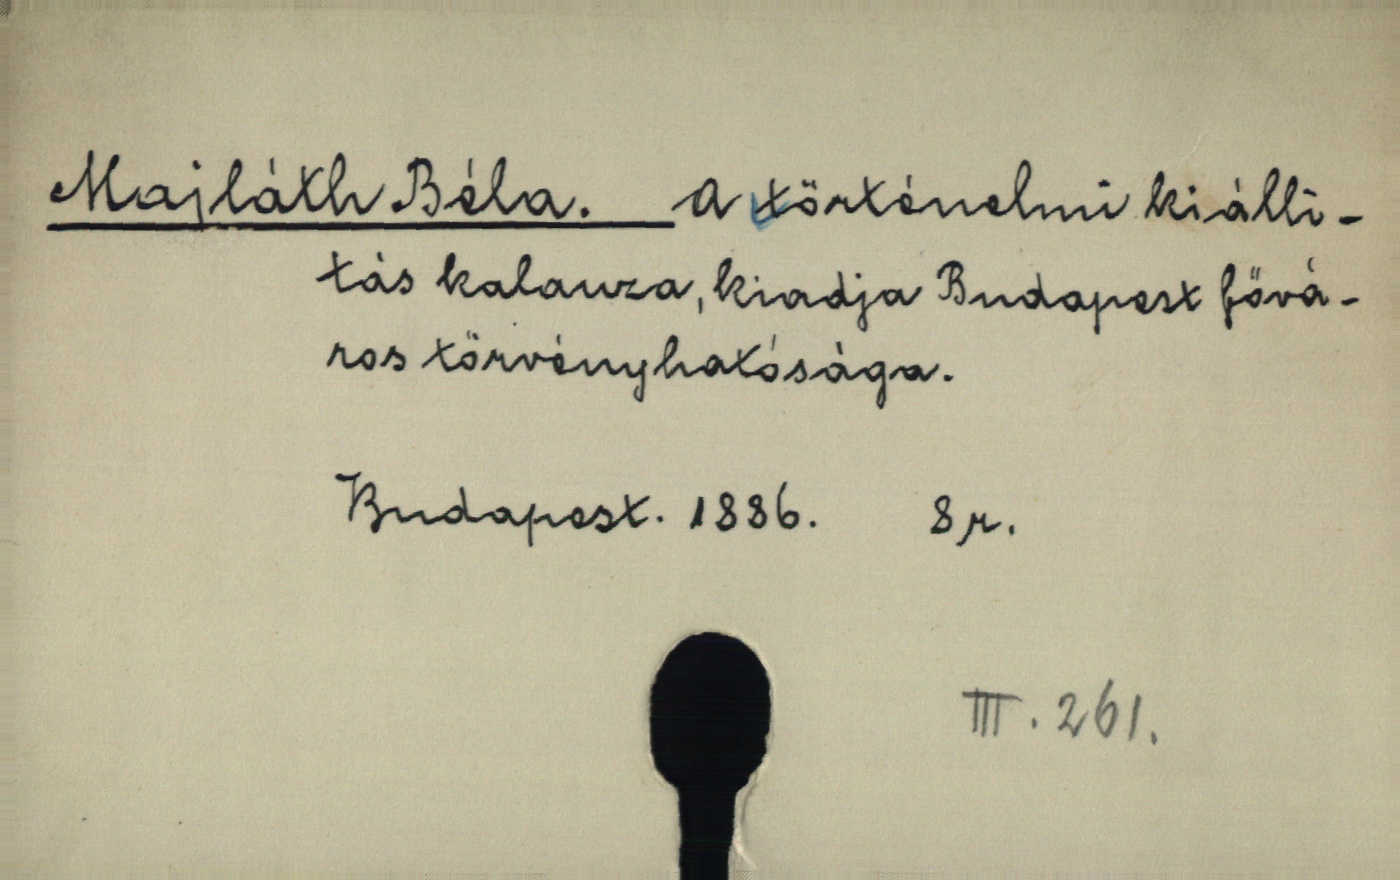 Majláth Béla. A történelmi kiálli-
tás kalauza, kiadja Budapest fővá-
ros törvényhatósága.
Budapest. 1886. 8r.
III. 261.